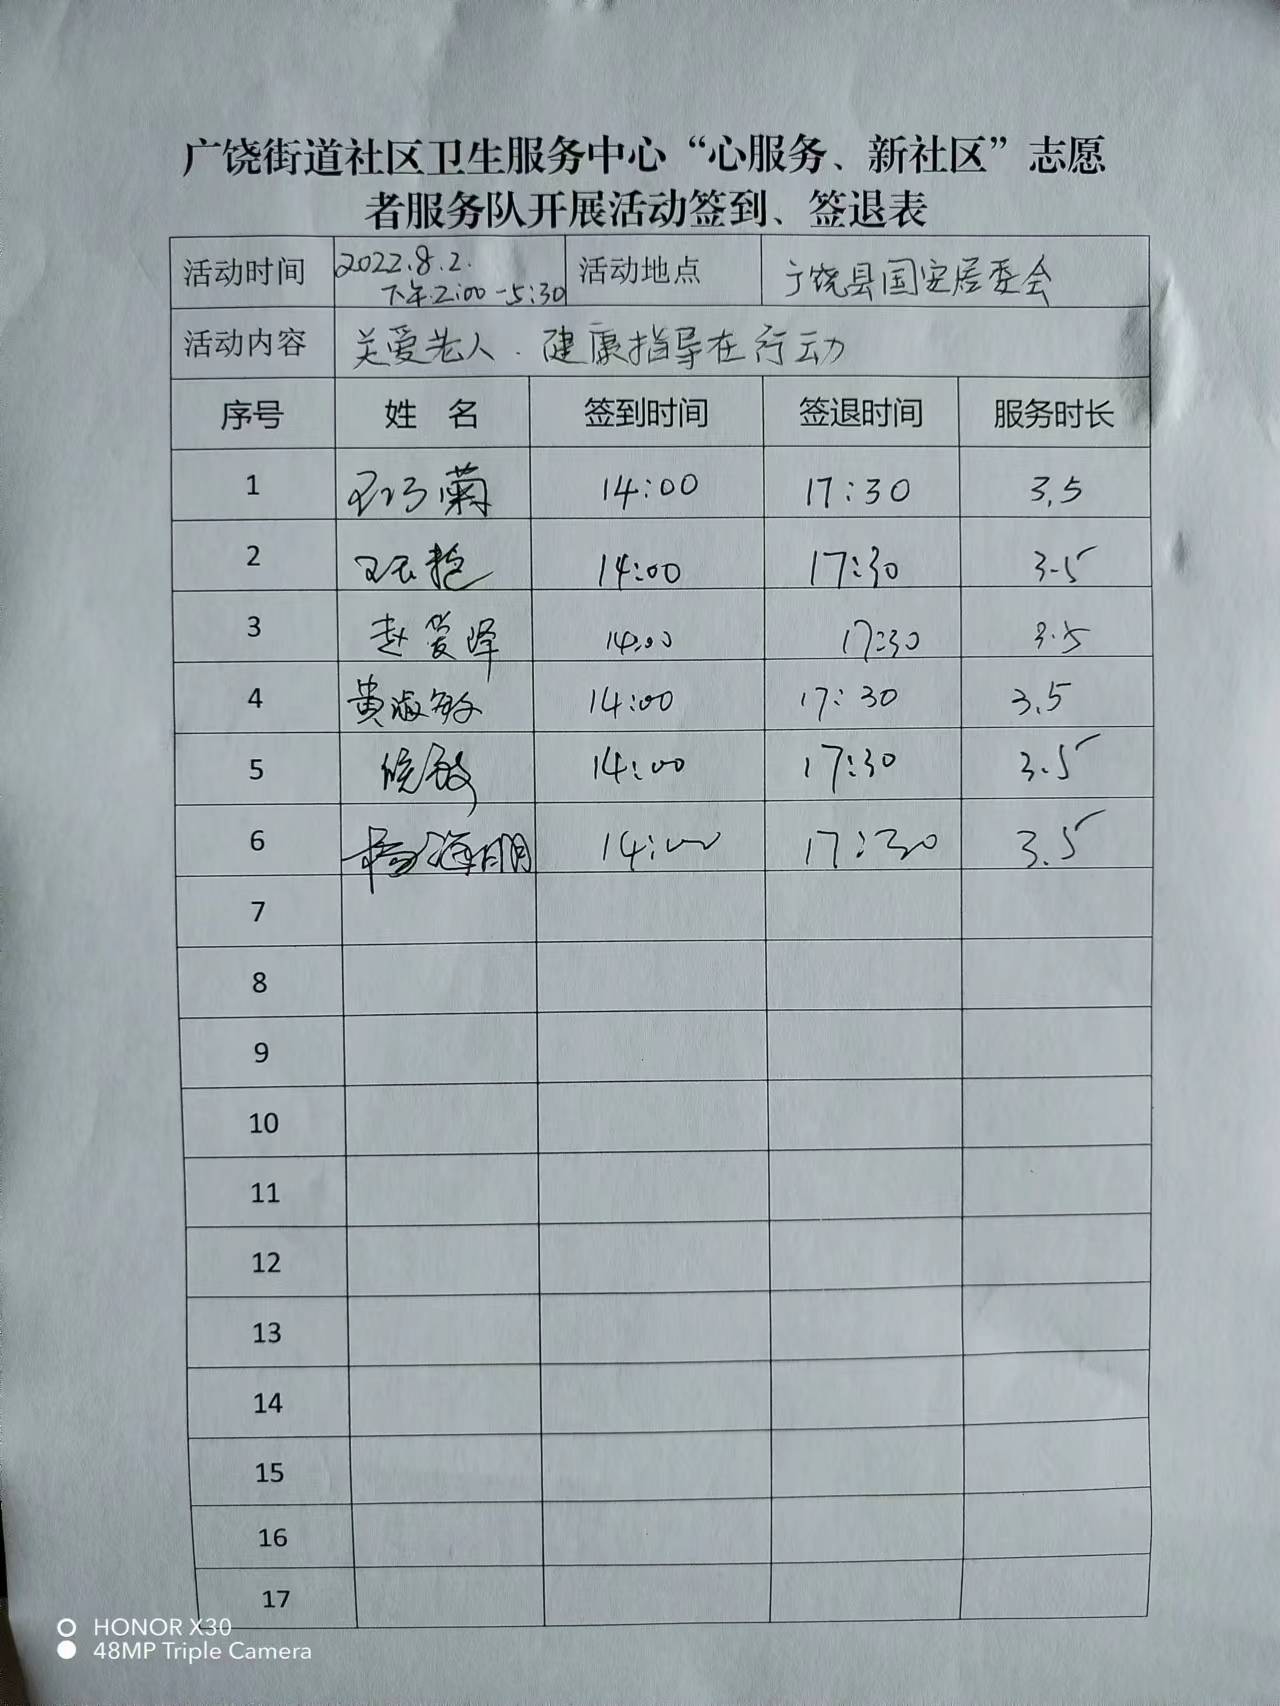 广饶街道社区卫生服务中心“心服务、新社区”志愿
者服务队开展活动签到、签退表
活动时间 2022.8.2. 下午2:00-5:30 活动地点 广饶县国安居委会
活动内容 关爱老人.健康指导在行动
序号 姓 名 签到时间 签退时间 服务时长
1 菊 14:00 17:30 3.5
2 王 艳 14:00 17:30 3.5
3 赵爱泽 14:00 17:30 3.5
4 黄淑敏 14:00 17:30 3.5
5 敏 14:00 17:30 3.5
6 杨海明 14:00 17:30 3.5
7
8
9
10
11
12
13
14
15
16
17
HONOR X30
48MP Triple Camera